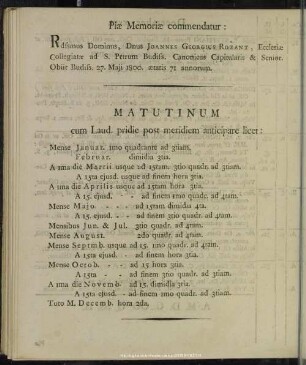 Piæ Memoriæ commendatur:
Rdſsimus Dominus, Dnus JOANNES GEORGIUS ROZANT, Eccleſiæ
Collegiatæ ad S. Petrum Budiſs. Canonicus Capitularis & Senior.
Obiit Budiſs. 27. Maji 1800. ætatis 71 annorum.
MATUTINUM
cum Laud. pridie poſt meridiem anticipare licet:
Menſe Januar. 1mo quadrante ad 3tiam.
Februar. dimidia 3tia.
A 1ma die Martii usque ad 15tam. 3tio quadr. ad 3tiam.
A 15ta ejusd. usque ad finem hora 3tia.
A 1ma die Aprilis usque ad 15tam hora 3tia.
A 15. ejusd. - - ad finem 1mo quadr. ad 4tam.
Menſe Majo - - - ad 15tam dimidia 4ta.
A 15. ejusd. - - ad finem 3tio quadr. ad 4tam.
Menſibus Jun. & Jul. 3tio quadr. ad 4tam.
Menſe Auguſt. 2do quadr. ad 4tam.
Menſe Septmb. usque ad 15. 1mo quadr. ad 4tam.
A 15ta ejusd. - ad finem hora 3tia.
Menſe Octob. - - ad 15 hora 3tia.
A 15ta - - ad finem 3tio quadr. ad 3tiam.
A 1ma die Novemb. ad 15. dimidia 3tia.
A 15ta ejusd. - ad finem 1mo quadr. ad 3tiam.
Toto M. Decemb. hora 2da.